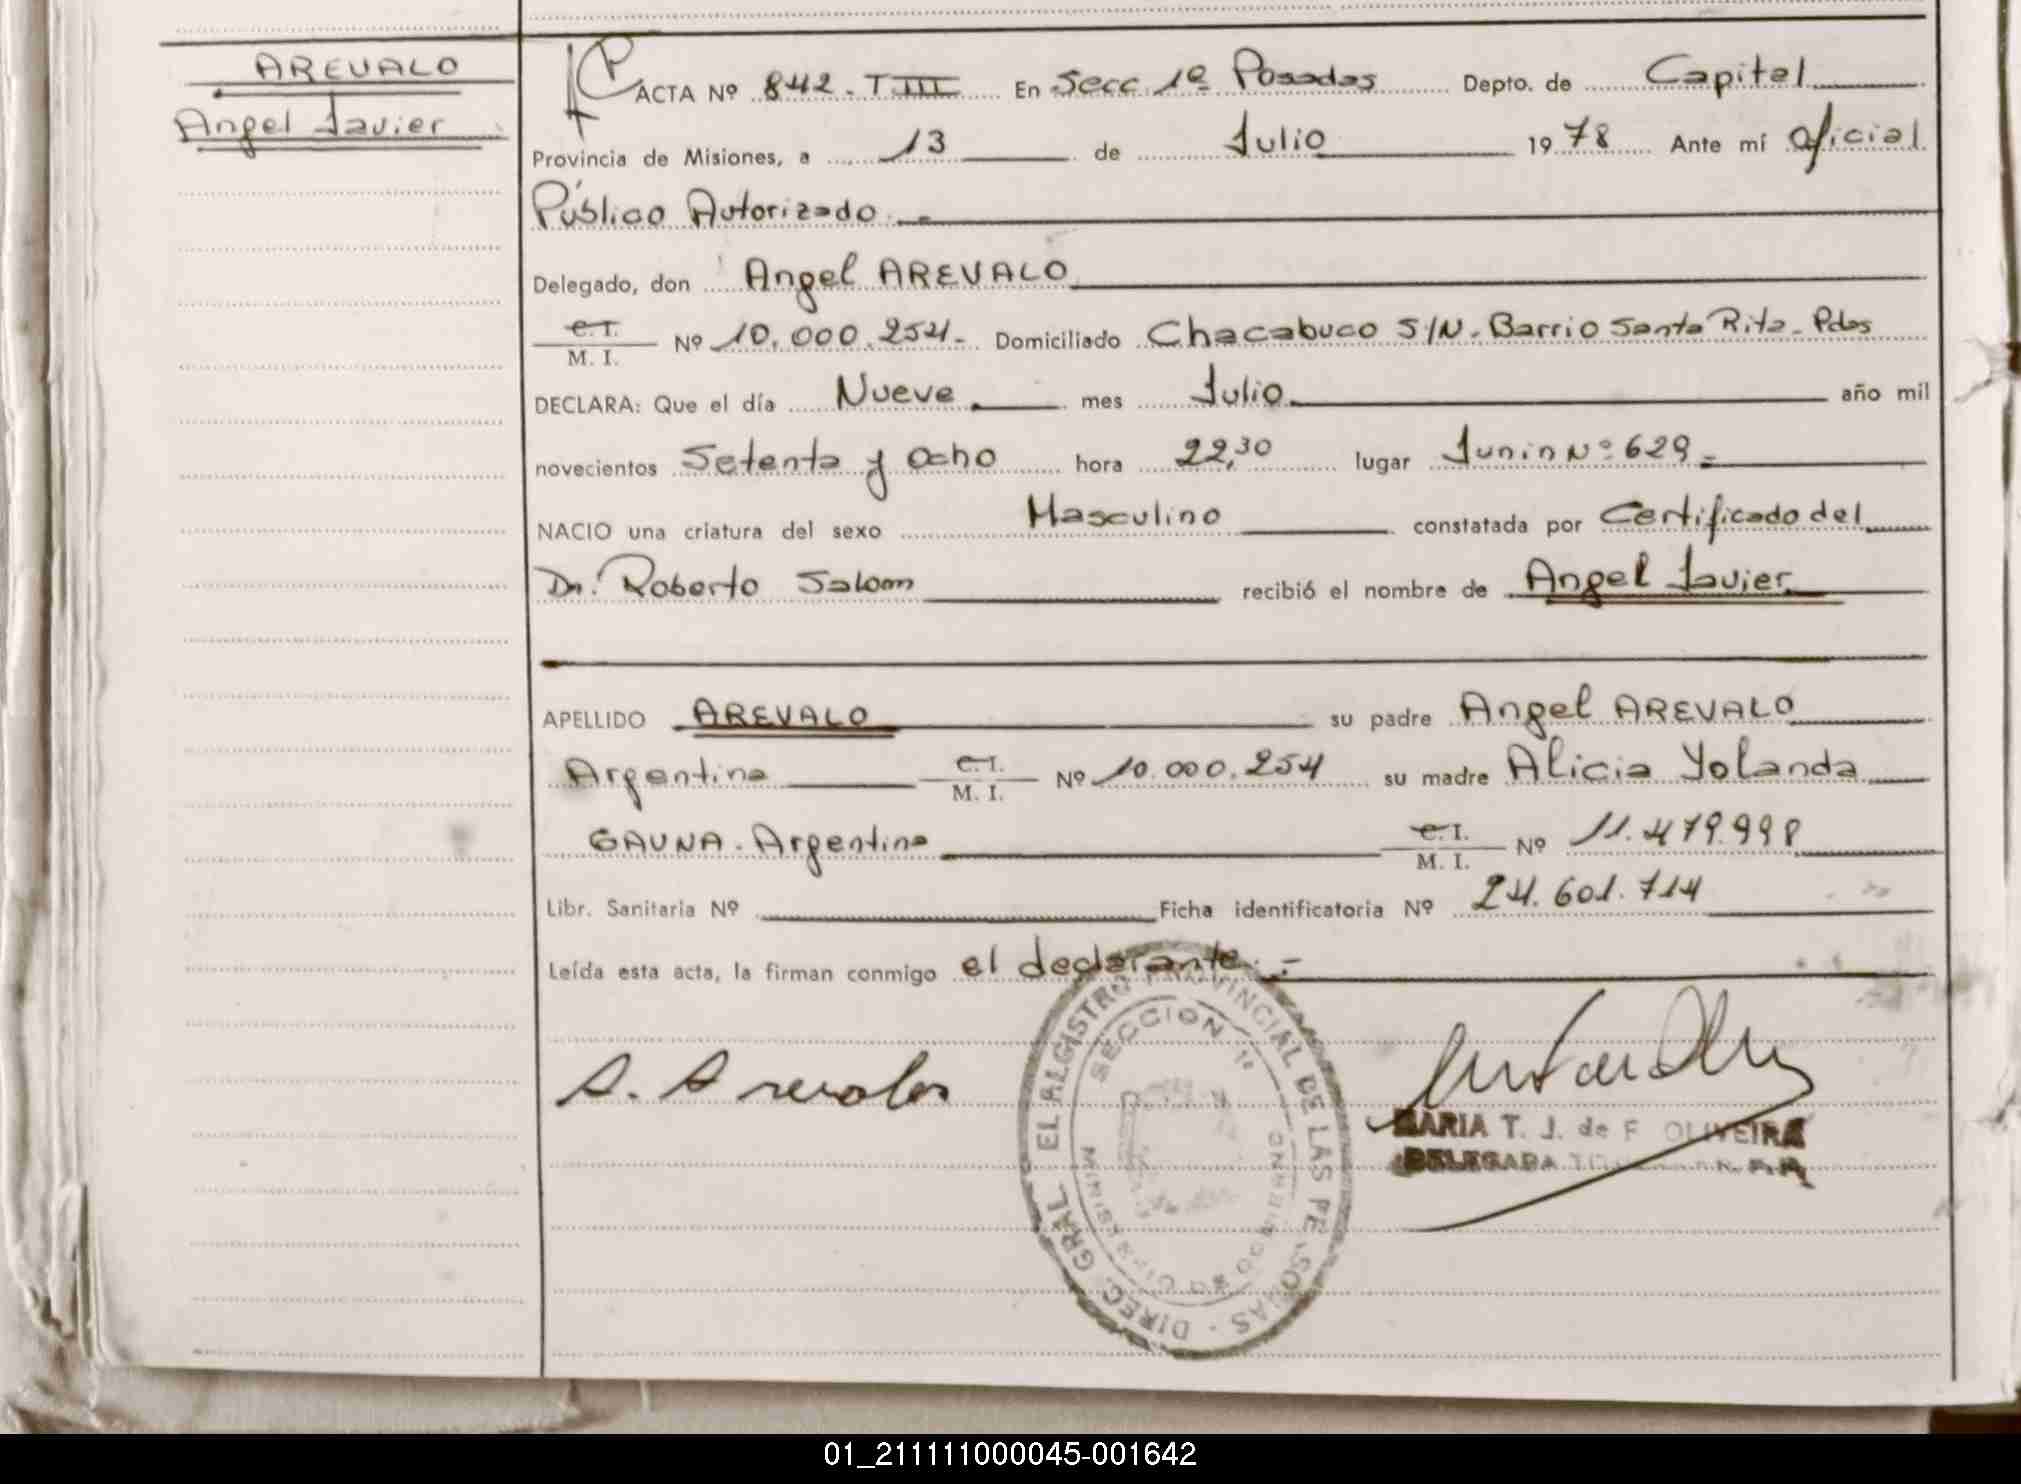 AREVALO
Angel Javier
ACTA Nº 842-T III En Secc 1º Posadas Depto. de Capital
Provincia de Misiones, a 13 de Julio 1978 Ante mí Oficial
Público Autorizado.-
Delegado, don Angel AREVALO
C.I. M. I. Nº 10.000.254- Domiciliado Chacabuco S/N. Barrio Santa Rita- Pdas
DECLARA: Que el día Nueve mes Julio año mil
novecientos Setenta y Ocho hora 22,30 lugar Junin Nº 629-
NACIO una criatura del sexo Masculino constatada por Certificado del
Dr. Roberto Salom recibió el nombre de Angel Javier
APELLIDO AREVALO su padre Angel AREVALO
Argentino C.I. M. I. Nº 10.000.254 su madre Alicia Yolanda
GAUNA. Argentina C.I. M. I. Nº 11.479.998
Libr. Sanitaria Nº Ficha identificatoria Nº 24.601.714
Leída esta acta, la firman conmigo el declarante.-
A. Arevalo
SECCION 1ª
MARIA T. J. de F OLIVEIRA
DELEGADA
01_211111000045-001642